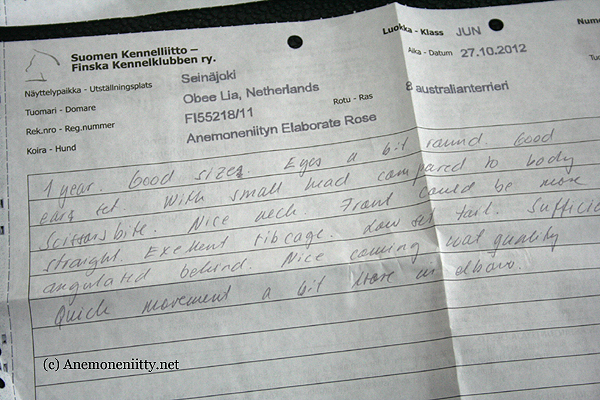 Suomen Kennelliitto –
Finska Kennelklubben ry.
Luokka - Klass JUN
Aika - Datum 27.10.2012
Näyttelypaikka - Utställningsplats Seinäjoki
Tuomari - Domare Obee Lia, Netherlands
Rek.nro - Reg.nummer FI55218/11
Rotu - Ras 8 australianterrieri
Koira - Hund Anemoneniityn Elaborate Rose
1 year. Good size. Eyes a bit round. Good
ears set. With small head compared to body
Scissorsbite. Nice neck. Front could be more
straight. Exellent ribcage. Low set tail.
angulated behind. Nice coming coat quality
Quick movement a bit loose in elbows.
(c) Anemoneniitty.net